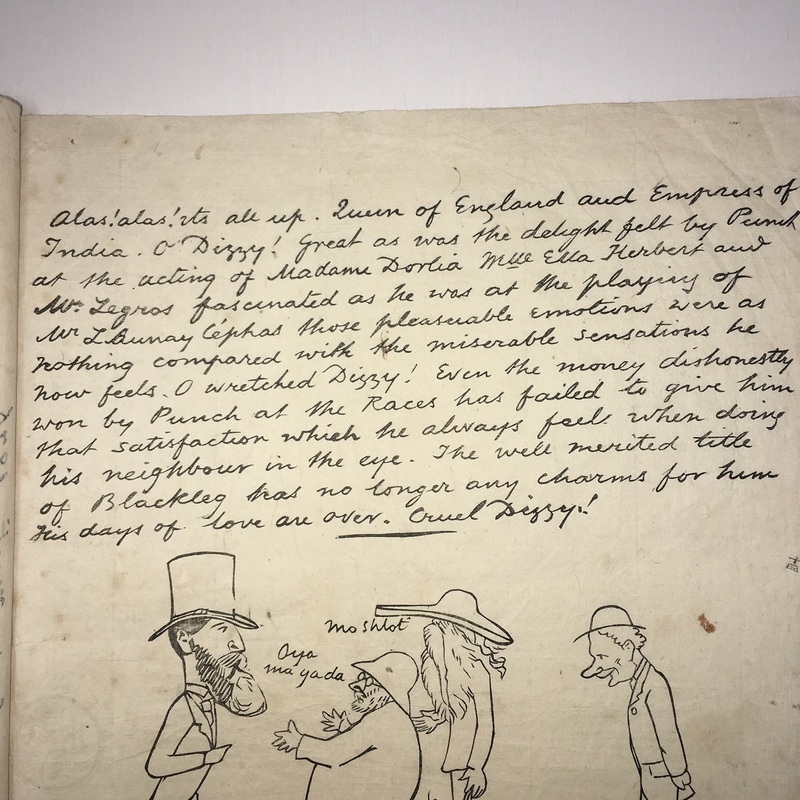 Alas! alas! its all up. Queen of England and Empress of
India. O Dizzy! Great as was the delight felt by Punch
at the acting of Madame Dorlia Mlle Ella Herbert and
Mr. Legros fascinated as he was at the playing of
Mr L'Aunay Céphas those pleasurable emotions were as
nothing compared with the miserable sensations he
now feels. O wretched Dizzy! Even the money dishonestly
won by Punch at the Races has failed to give him
that satisfaction which he always feels when doing
his neighbour in the eye. The well merited title
of Blackleg has no longer any charms for him
His days of love are over. Cruel Dizzy!
moshlot
Oya
ma yada